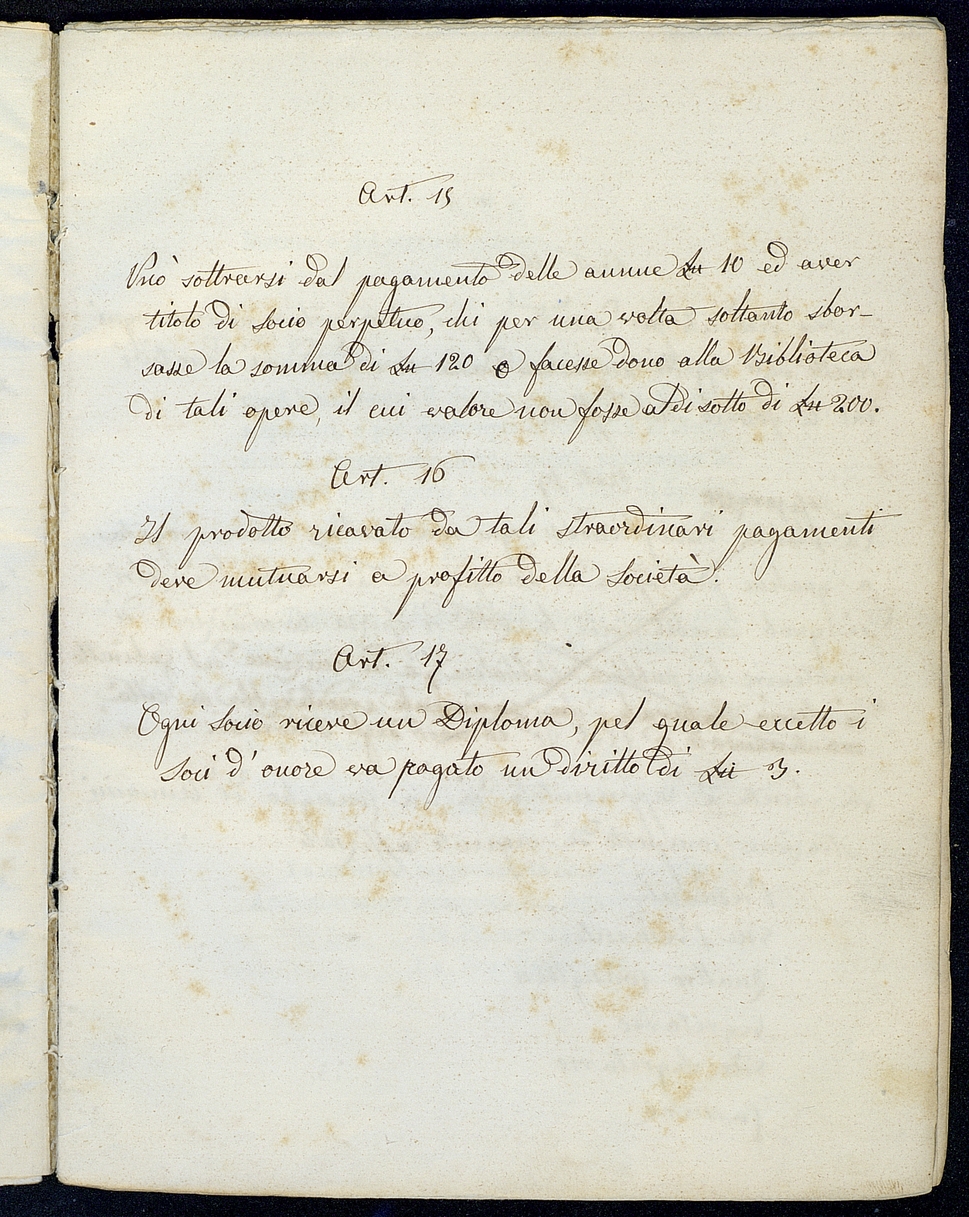 Art. 15
Può sottrarsi dal pagamento delle annue Ln 10 ed aver
titolo di socio perpetuo, chi per una volta soltanto sbor-
sasse la somma di Ln 120 o facesse dono alla Biblioteca
di tali opere, il cui valore non fosse al di sotto di Ln 200.
Art. 16
Il prodotto ricavato da tali straordinari pagamenti
deve mutuarsi a profitto della Società.
Art. 17
Ogni socio riceve un Diploma, pel quale eccetto i
soci d'onore va pagato un diritto di Ln 3.